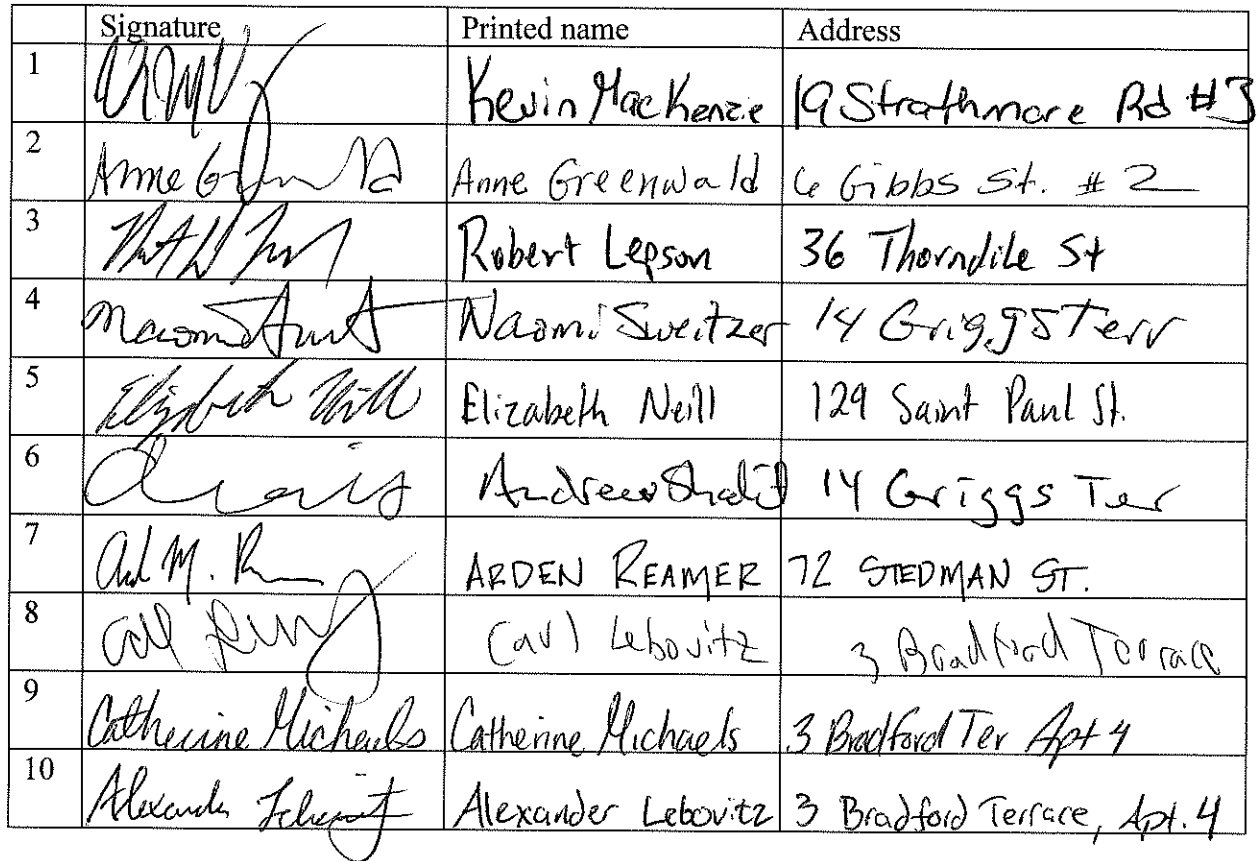 Signature Printed name Address
1 Kevin MacKenzie 19 Strathmore Rd #3
2 Anne Greenwald Anne Greenwald 6 Gibbs St. # 2
3 Robert Lepson 36 Thorndile St
4 Naomi Naomi Sweitzer 14 Griggs Terr
5 Elizabeth Neill Elizabeth Neill 129 Saint Paul St.
6 Andrew Shalit 14 Griggs Ter
7 M. ARDEN REAMER 72 STEDMAN ST.
8 Carl Lebovitz 3 Bradford Terrace
9 Catherine Michaels Catherine Michaels 3 Bradford Ter Apt 4
10 Alexander Lebovitz Alexander Lebovitz 3 Bradford Terrace, Apt. 4